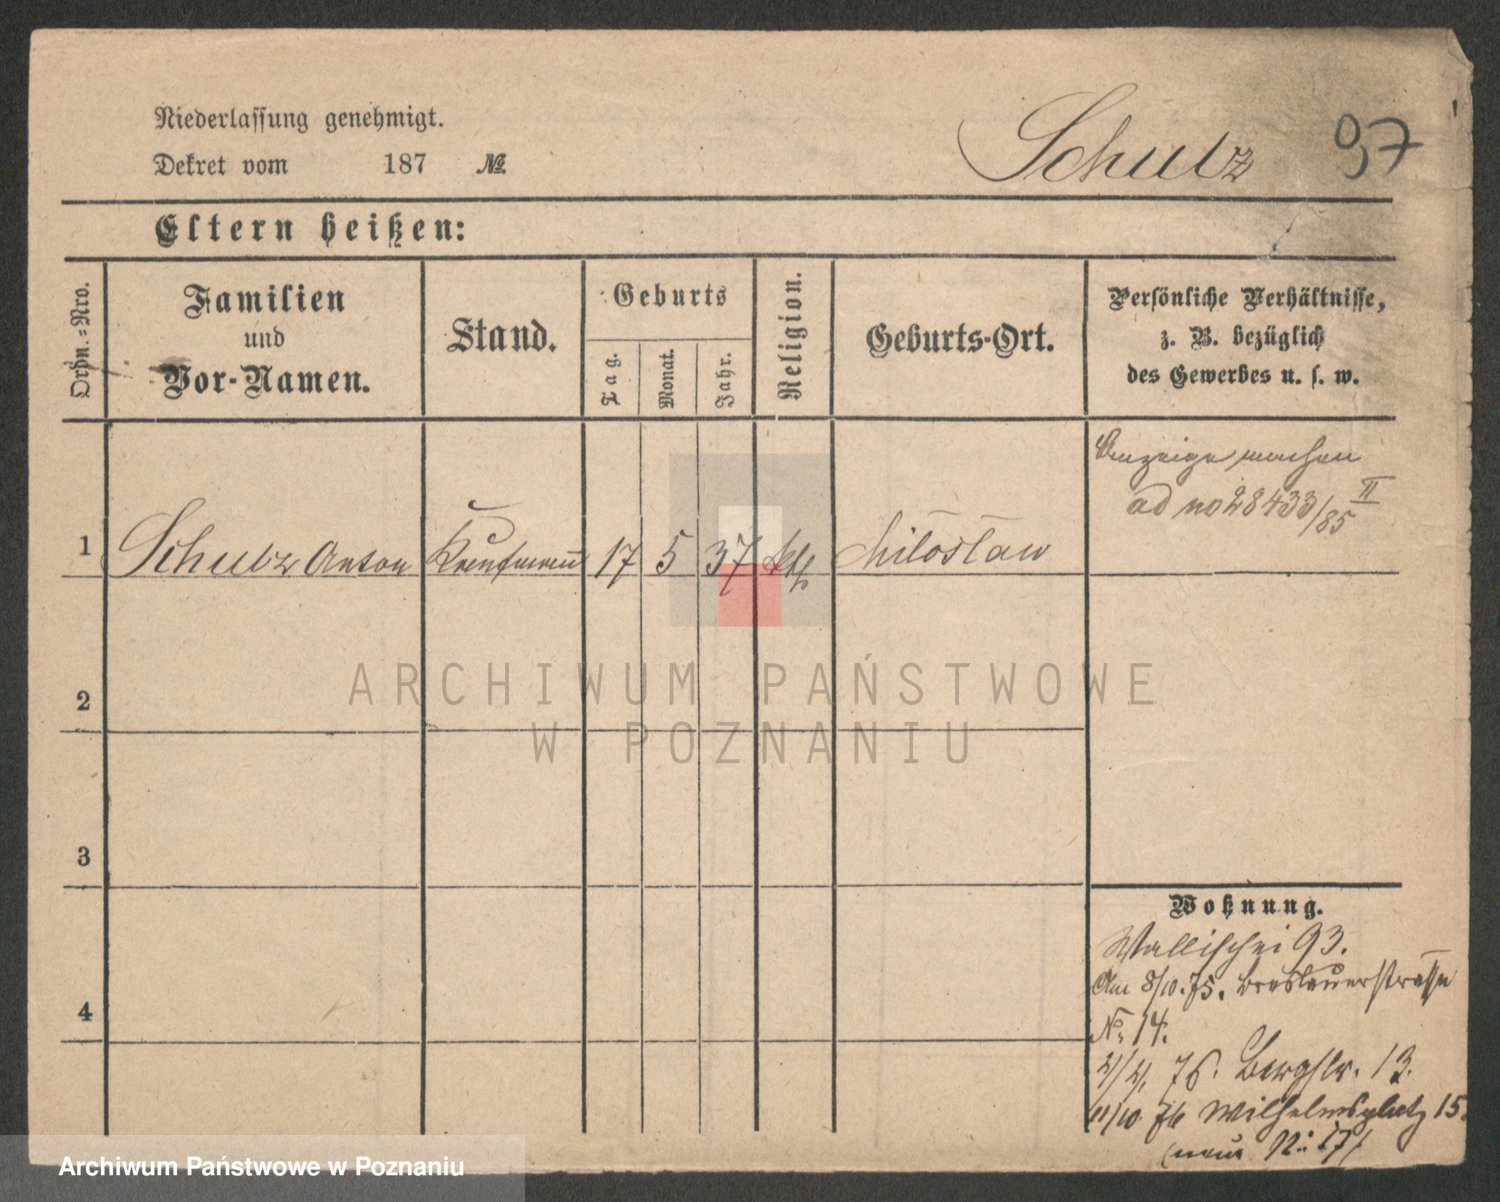 Niederlassung genehmigt.
Dekret vom 187 №
Schulz 97
Eltern heißen:
Ordn.-Nro.
Familien
und
Vor-Namen.
Stand.
Geburts
Tag.
Monat.
Jahr.
Religion.
Geburts-Ort.
Persönliche Verhältnisse,
z. B. bezüglich
des Gewerbes u. s. w.
Anzeige machen
ad no 28433/85 II
1 Schulz Anton Kaufmann 17 5 37 kth Miloslaw
2
3
4
Wohnung.
Wallischei 93.
Am 8/10. 75. Breslauerstrasse
No. 14.
2/4. 76. Bergstr. 13.
11/10 76 Wilhelmsplatz 15.
(neue N: 17)
ARCHIWUM PAŃSTWOWE
W POZNANIU
Archiwum Państwowe w Poznaniu